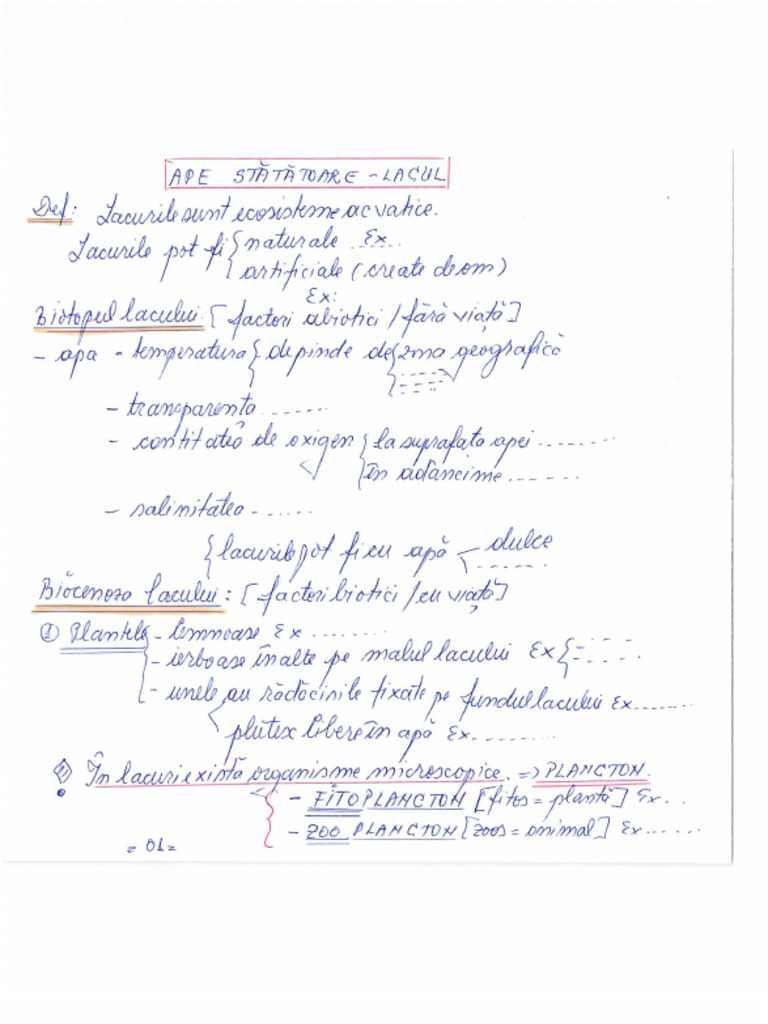 APE STĂTĂTOARE - LACUL
Def: Lacurile sunt ecosisteme acvatice.
Lacurile pot fi { naturale Ex...
artificiale (create de om)
Ex:
Biotopul lacului: [factori abiotici / fără viață]
- apa - temperatura { depinde de { zona geografică
- transparenta .......
- cantitatea de oxigen { la suprafața apei .........
în adâncime .......
- salinitatea ......
{ lacurile pot fi cu apă - dulce
Biocenoza lacului: [factori biotici / cu viață]
① Plantele - lemnoase Ex ........
- ierboase înalte pe malul lacului Ex {
- unele au rădăcinile fixate pe fundul lacului Ex.......
plutesc libere în apă Ex.........
În lacuri există organisme microscopice. => PLANCTON.
- FITOPLANCTON [fitos = plantă] Ex..
- ZOO PLANCTON [zoos = animal] Ex......
= 01 =